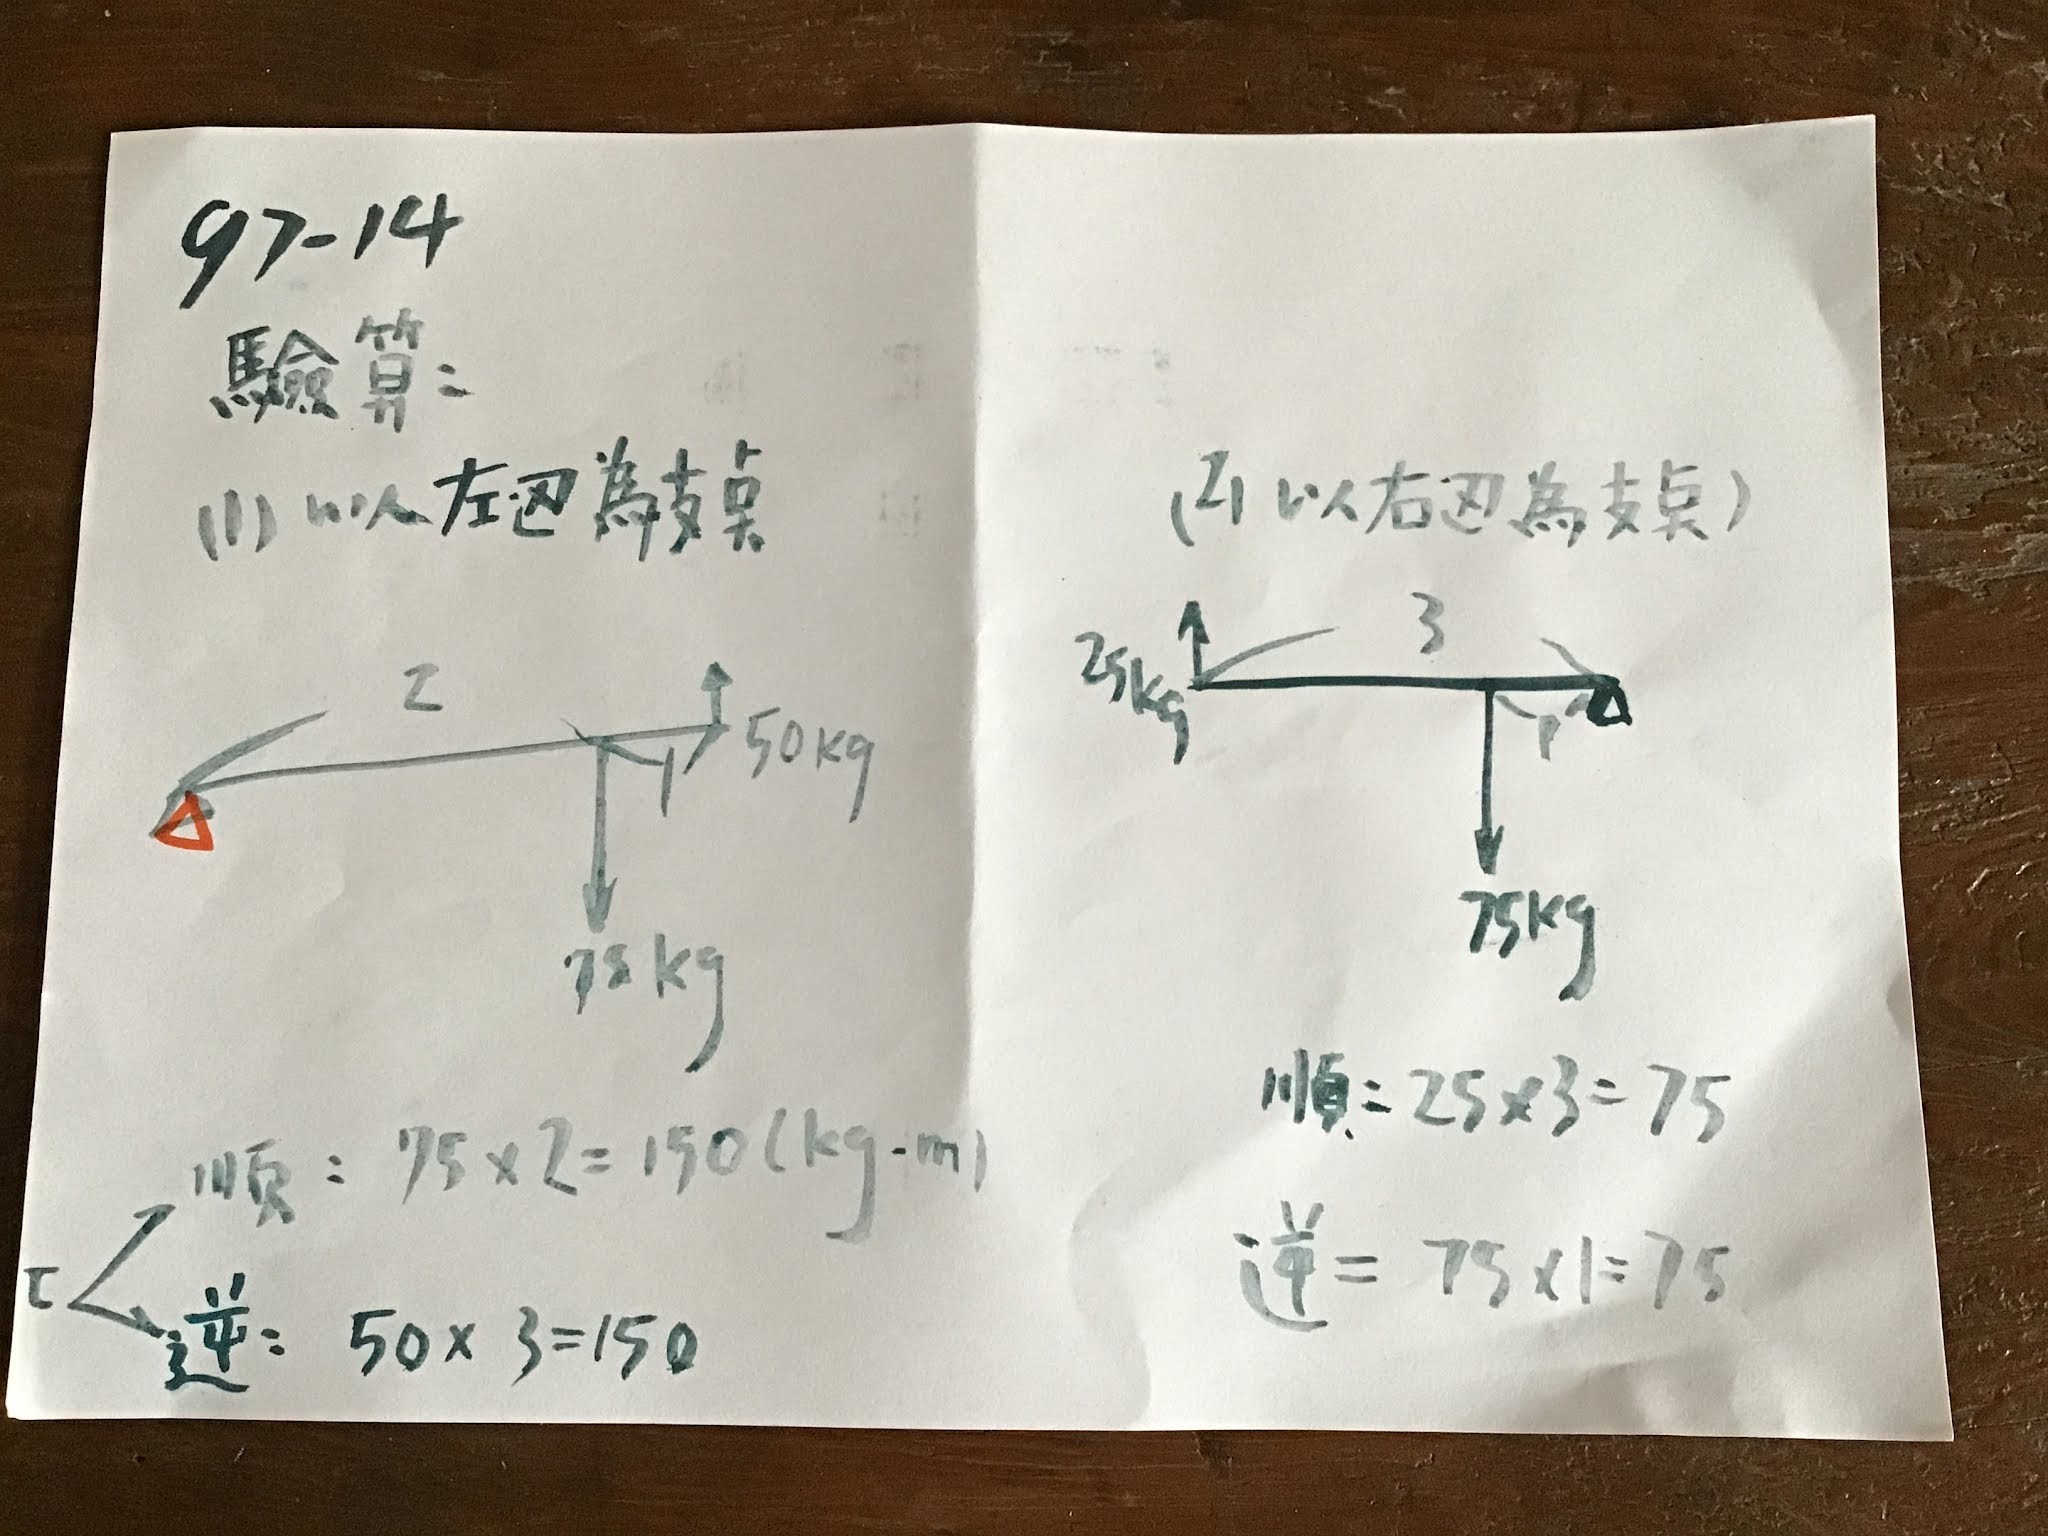 97-14
驗算:
(1) 以左边為支桌
2
1
50kg
75kg
順: 75×2=150(kg-m)
τ
逆: 50×3=150
(2) 以右边為支桌)
3
25kg
1
75kg
順: 25×3=75
逆= 75×1=75